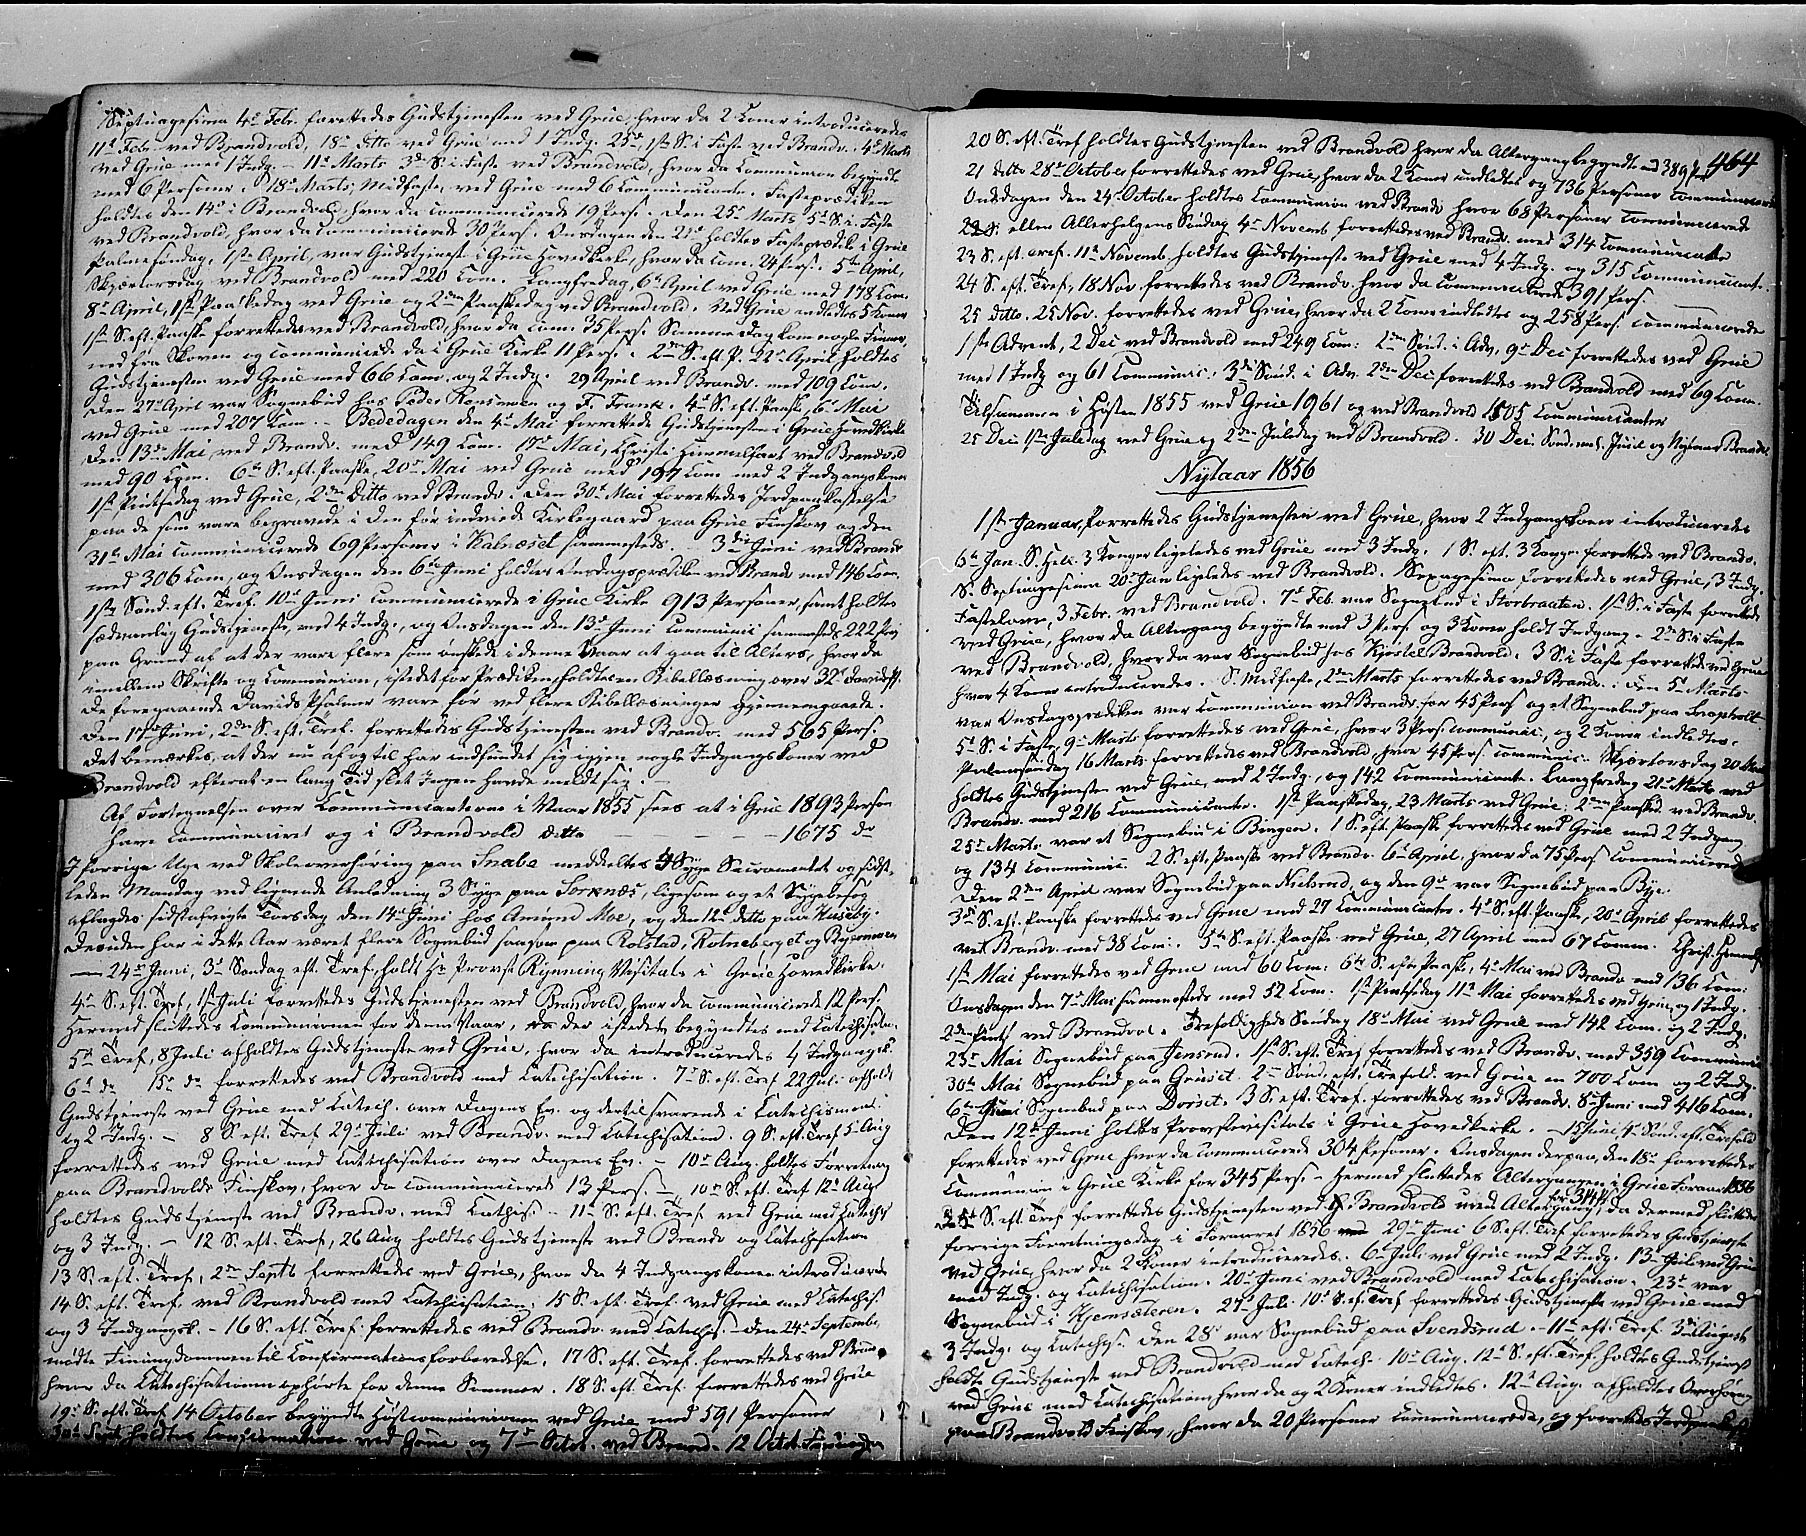 Septuagesima 4de Febr. forrettedes Gudstjenesten ved Grue, hvor da 2 Koner introduceredes
11te Febr. ved Brandvold, 18de ditto ved Grue med 1 Indg. 25de, 1ste S. i Faste ved Brandv. 4de Marts
ved Grue med 1 Indg. – 11te Marts 3die S. i Faste ved Brandvold, hvor da Communion begyndte
med 6 Personer. 18de Marts, Midfaste, ved Grue med 6 Communicanter. Fasteprædiken
holdtes den 14de i Brandvold, hvor da communicerede 19 Pers. Den 25de Marts 5te S. i Faste
ved Brandvold, hvor da communicerede 30 Pers. Onsdagen den 21de holdtes Fasteprædik. i Grue
Palmesøndag, 1ste April, var Gudstjenest i Grue Hovedkirke, hvor da com. 24 Pers. 5te April,
Skjærtorsdag ved Brandvold med 220 Com. Langfredag, 6te April ved Grue med 178 Com.
8de April, 1ste Paaskedag ved Grue og 2den Paaskedag ved Brandvold. Ved Grue indledtes 5 Koner
1ste S. eft. Paaske forrettedes ved Brandvold, hvor da com. 75 Pers. Sammesdag kom nogle Finner
ned fra Skoven og communicerede da i Grue Kirke 11 Pers. 2den S. eft. P. 22de April holdtes
Gudstjenesten ved Grue med 66 Com. og 2 Indg. 29 April ved Brandv. med 109 Com.
Den 27de April var Sognebud hos Peder og F. Frank. 4de S. eft. Paaske, 6te Mai
ved Grue med 207 Com. – Bededagen den 4de Mai forrettede Gudstjenesten i Grue Hovedkirke
Den 13de Mai ved Brandv. med 149 Com. 17de Mai, Christi Himmelfart ved Brandvold
med 90 Com. 6te S. eft. Paaske, 20de Mai ved Grue med 197 Com med 2 Indgangskoner
1ste Pintsedag ved Grue, 2den Ditto ved Brandv. Den 30te Mai forrettedes Jordpaakastelse
paa de som vare begravede i den før indviede Kirkegaard paa Grue Finskov og den
31te Mai communicerede 69 Personer i Kalneset sammesteds. 3die Juni ved Brandv.
med 306 Com, og Onsdagen den 6te Juni holdtes Onsdagsprædiken ved Brandv med 146 Com.
1ste Sønd. eft. Tref. 10de Juni communicerede i Grue Kirke 913 Personer, samt holdtes
sædvanlig Gudstjeneste, med 4 Indg., og Onsdagen den 13de Juni communic sammesteds 222 Pers
paa Grund af at der vare flere som ønskede i denne Vaar at gaa til Alters, hvor da
imellem Skrifte og Communion, istedet for Prædiken, holdtes en Bibellæsning over 32te Davids Ps.
De foregaaende Davids Psalmer vare før ved flere Bibellæsninger gjennemgaaede.
Den 17de Juni, 2den S. eft. Tref. forrettedes Gudstjenesten ved Brandv. med 565 Pers.
Det bemærkes, at der nu af og til har indfundet sig igjen nogle Indgangskoner ved
Brandvold efterat en lang Tid slet Ingen havde meldt sig. –
Af Fortegnelsen over Communicanterne i Vaar 1855 sees at i Grue 1893 Person
have communiceret og i Brandvold ditto – – – – – 1675 do
I forrige Uge ved Skoleoverhøring paa Snabe meddeltes 4 Syge Sacramentet og sidst-
leden Mandag ved lignende Anledning 3 Syge paa Sorknæs, ligesom og et Sygebesøg
aflagdes sidstafvigte Torsdag den 14de Juni hos Amund Moe, og den 12te ditto paa Huseby.
Desuden har i dette Aar været flere Sognebud saasom paa Rolstad, Rotneberget og Rynomoen
– 24de Juni, 3die Søndag eft. Tref. holdt Hr. Provst Rynning Visitats i Grue Hovedkirke.
4de S. eft. Tref, 1ste Juli forrettedes Gudstjenesten ved Brandvold, hvor da communicerede 12 Pers.
Hermed sluttedes Communionen for dennesvaar, da der istedet begyndtes med Catechisatio.
5te Tref, 8 Juli afholdtes Gudstjeneste ved Grue, hvor da introduceredes 4 Indgangsk.
6te do 15de do forrettedes ved Brandvold med Catechisation. 7de S. eft. Tref 22 Juli afholdt
Gudstjeneste ved Grue med Catech. over Dagens Ev. og dertil svarende i Catechismen.
og 2 Indg. – 8 S. eft. Tref 29de Juli ved Brandv. med Catechisation. 9 S. eft. Tref 5 Aug
forrettedes ved Grue med Catechisation over Dagens Ev. – 10de Aug. holdtes Forretning
paa Brandvolds Finskov, hvor da communicerede 13 Pers. – 10de S. eft. Tref 12te Aug
holdtes Gudstjeneste ved Brandv. med Catchis. – 11te S. eft. Tref ved Grue med Catechis
og 3 Indg. – 12 S. eft. Tref, 26 Aug holdtes Gudstjeneste ved Brandv og Catechisation
13 S. eft. Tref, 2den Septb forrettedes ved Grue, hvor da 4 Indgangskoner introducerede
14 S. eft. Tref. ved Brandvold med Catechisation. 15 S. eft. Tref. ved Grue med Catechis.
og 3 Indgangsk. – 16 S. eft. Tref. forrettedes ved Brandv. med Catechis. – Den 24de September
mødte Finungdommen til Confirmationsforberedelse. 17 S. eft. Tref. forrettedes ved Bran
hvor da Catechisationen ophørte for denne Sommer. 18 S. eft. Tref. forrettedes ved Grue
19de S. eft. Tref 14 October begyndte Høstcommunionen ved Grue med 591 Personer
30te Sept. holdtes Confirmation ved Grue og 7de Octob. ved Brandv. 12 Octob
464
20 S. eft. Tref holdtes Gudstjenesten ved Brandvold hvor da Altergang begyndt med 389 Pers
21 ditto 28de October forrettedes ved Grue, hvor da 2 Koner indledtes og 736 Personer communicerede
Onsdagen den 24de October holdtes Communion ved Brandv hvor 68 Personer communicerede
22 S. ellen Allerhelgens Søndag 4de Novemb forrettedes ved Brandv. med 314 Communicanter
23 S. eft. Tref. 11te Novemb holdtes Gudstjeneste ved Grue med 4 Indg. og 315 Communicant.
24 S. eft. Tref, 18 Nov. forrettedes ved Brandv. hvor da communicerede 391 Pers.
25 ditto. 25 Nov. forrettedes ved Grue, hvor da 2 Koner indledtes og 258 Pers. communicerede
1ste Advent, 2 Dec ved Brandvold med 249 Com: 2den Sønd. i Adv. 9de Dec forrettedes ved Grue
med 1 Indg og 61 Communic. 3die Sønd. i Adv. Dec forrettedes ved Brandvold med 69 Com.
Tilsammen i Høsten 1855 ved Grue 1961 og ved Brandvold 1505 Communicanter
25 Dec. 1ste Juledag ved Grue og 2den Juledag ved Brandvold. 30 Dec. Sønd. mel. Juul og Nytaar Brandv.
Nytaar 1856
1ste Januar, forrettedes Gudstjenesten ved Grue, hvor 2 Indgangskoner introduceredes
6te Jan. S. Hell. 3 Konger ligeledes ved Grue med 3 Indg. 1 S. eft. 3 Konger forrettede ved Brandv.
S. Septuagesima 20de Jan ligeledes ved Brandvold. Sexagesima forrettedes ved Grue, 3 Indg.
Fastelavn, 3 Febr. ved Brandvold. 7de Feb. var Sognebud i Storbraaten. 1ste S. i Faste forrettede
ved Grue, hvor da Altergang begyndte med 3 Pers og 3 Koner holdt Indgang. 2den S. i Faste
ved Brandvold, hvor da var Sognebud hos Kjøstel Brandvold. 3 S. i Faste forrettede ved Grue
hvor 4 Koner introduceredes. S. Midfaste, 2den Marts forrettedes ved Brandv. Den 5te Marts
var Onsdagsprædiken var Communion ved Brandv. for 45 Pers og et Sognebud paa
5te S. i Faste, 9de Marts forrettedes ved Grue, hvor 3 Pers communic. og 2 Koner indledtes.
Palmesøndag 16 Marts forrettedes ved Brandvold, hvor 45 Pers. communic. Skjærtorsdag 20 Mar
holdtes Gudstjenesten ved Grue, med 2 Indg. og 142 Communicant. Langfredag 21de Marts ved
Brandv. med 216 Communicanter. 1ste Paaskedag, 23 Marts ved Grue. 2den Paasked. ved Brandv.
25de Marts var et Sognebud i Bingen. 1 S. eft. Paaske forrettedes ved Grue med 2 Indgang
og 134 Communic. 2 S. eft. Paaske ved Brandv. 6te April, hvor da 75 Pers. communicerede
Den 2den April var Sognebud paa Nielsrud, og den 9de var Sognebud paa Bye.
3die S. eft. Paaske forrettedes ved Grue med 27 Communicanter. 4de S. eft. Paaske, 20de April forrettedes
ved Brandv. med 38 Com. 5te S. eft. Paaske ved Grue, 27 April med 67 Comm. Christ. Himmelf.
1ste Mai forrettedes ved Grue med 60 Com. 6te S. efter Paaske, 4de Mai ved Brandv med 136 Com.
Onsdagen den 7de Mai sammesteds med 52 Com. 1ste Pintsedag 11te Mai forrettedes ved Grue, og 1 Indg.
2den Pints. ved Brandvol. Trefoldigheds Søndag 18de Mai ved Grue med 142 Com. og 2 Indg.
23de Mai Sognebud paa Jensrud. 1ste S. eft. Tref forrettedes ved Brandv. med 359 Communic
30te Mai Sognebud paa Gruset. 2den Sønd. eft. Trefold. ved Grue en 700 Com og 2 Indg.
6te Juni Sognebud paa Dorset. 3 S. eft. Tref. forrettedes ved Brandv. 8de Juni med 416 Com.
Den 12te Juni holdtes Provstevisitats i Grue Hovedkirke. – 15 Juni, 4de Sønd. eft. Trefold
forettedes ved Grue hvor da communicerede 304 Pesoner. Onsdagen derpaa, den 18de forrettedes
Communion i Grue Kirke for 345 Pers. – Hermed sluttedes Altergangen i Grue Foraar 1856
for 344 Pers
5te S. eft. Tref forrettedes Gudstjenesten ved Brandvold med Altergang, da dermed sluttedes
forrige Forretningsdag i Foraaret 1856 29de Juni 6 S. eft. Tref forrettedes Gudstjeneste
ved Grue, hvor da 2 Koner introduceredes. 6te Juli ved Grue med 2 Indg. 13 Juli ved Grue
med Indg. og Catechisation. 20de ved Brandvold med Catechisation. 23de var
Sognebud i Kjernsæteren. 27de Juli 10de S. ef. Tref forrettedes Gudstjeneste ved Grue med
3 Indg. og Catechis. Den 28de var Sognebud paa Svendsrud. – 11te eft. Tref. 3die August
holdtes Gudstjenest ved Brandvold med Catech. 10de Aug. 12te S. eft. Tref. holdtes Gudstjenest
ved Grue med Catechisation hvor da og 2 Koner indledtes. 12te Aug. afholdtes Overhøring
paa Brandvold Finskov, hvor da 20 Personer communicerede, og forrettedes